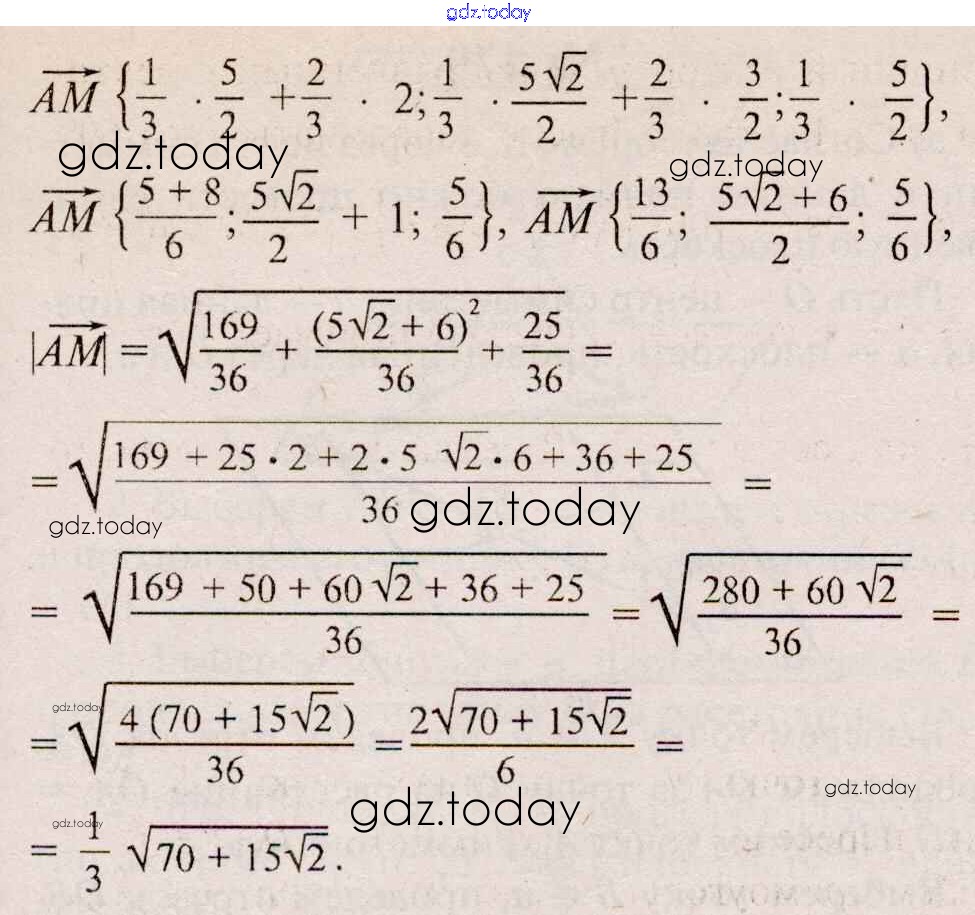 gdz.today
AM⃗ {1/3 · 5/2 + 2/3 · 2; 1/3 · 5√2/2 + 2/3 · 3/2; 1/3 · 5/2},
gdz.today gdz.today
AM⃗ {(5 + 8)/6; 5√2/2 + 1; 5/6}, AM⃗ {13/6; (5√2 + 6)/2; 5/6},
|AM⃗| = √(169/36 + (5√2 + 6)²/36 + 25/36) =
= √((169 + 25 · 2 + 2 · 5 √2 · 6 + 36 + 25)/36) =
gdz.today gdz.today
= √((169 + 50 + 60 √2 + 36 + 25)/36) = √((280 + 60 √2)/36) =
gdz.today
= √(4 (70 + 15√2)/36) = 2√(70 + 15√2)/6 =
gdz.today gdz.today
gdz.today
= 1/3 √(70 + 15√2).